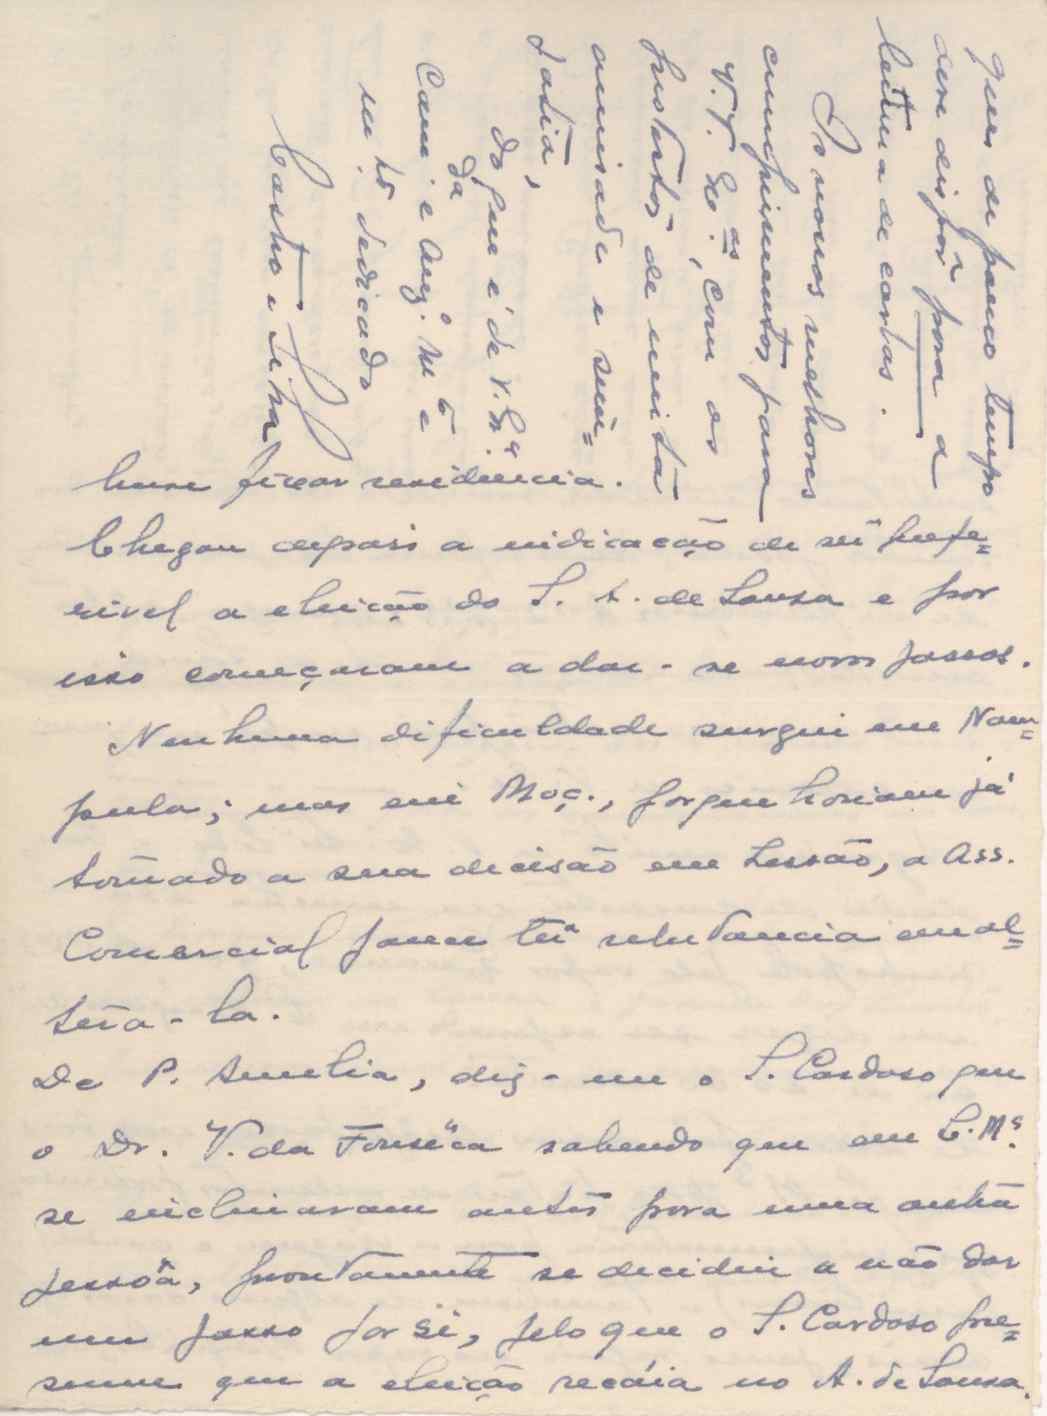 hum fixar residencia.
Chegou depois a indicação de sêr prefe=
rivel a eleição do S. A. de Sousa e por
isso começaram a dar-se novos passos.
Nenhuma dificuldade surgiu em Nam=
pula; mas em Moç., porque haviam já
tomado a sua decisão em sessão, a Ass.
Comercial parece têr relutancia em al=
tera-la.
De P. Amelia, diz-me o S. Cardoso que
o Dr. V. da Fonsêca sabendo que em L. Mˢ.
se inclinavam antes para uma outra
pessôa, prontamente se decidiu a não dar
um passo por si, pelo que o S. Cardoso pre=
sume que a eleição recáia no A. de Sousa.
quer de pouco tempo
dem dispôr para a
leitura de cartas.
Os nossos melhores
cumprimentos para
V. V. Exᵃˢ, com os
protestos de muita
amisade e sim=
patia,
do que é de V. Exᵃ
Camᵈᵃ e Amgº. Mᵗº e
mᵗº dedicado
Castro e Silva